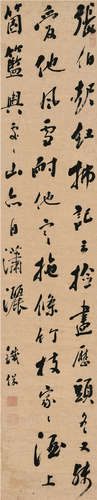 張伯起紅拂記云檢盡歷頭冬又殘
愛他風雪耐他寒拖條竹枝家〻酒上
箇籃輿處〻山亦自瀟灑
鐵保